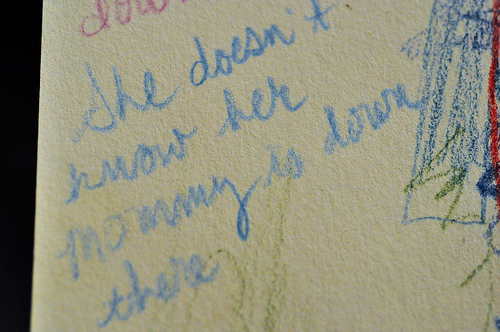 down
She doesn't
know her
mommy is down
there